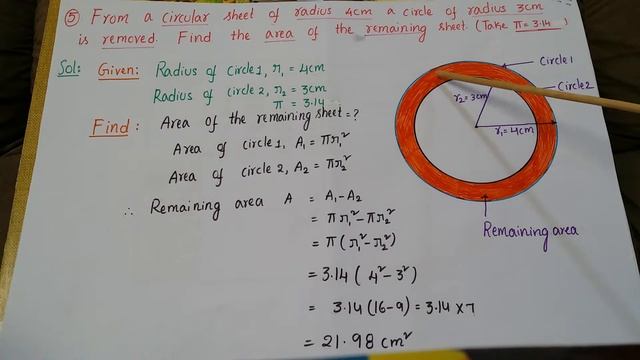 ⑤ From a circular sheet of radius 4cm a circle of radius 3cm
is removed. Find the area of the remaining sheet. (Take π = 3.14)
Sol: Given: Radius of Circle 1, r₁ = 4cm
Radius of circle 2, r₂ = 3cm
π = 3.14
Find: Area of the remaining sheet = ?
Area of circle 1, A₁ = πr₁²
Area of circle 2, A₂ = πr₂²
∴ Remaining area A = A₁ - A₂
= πr₁² - πr₂²
= π(r₁² - r₂²)
= 3.14 (4² - 3²)
= 3.14 (16 - 9) = 3.14 × 7
= 21.98 cm²
Circle 1
Circle 2
r₂ = 3cm
r₁ = 4cm
Remaining area